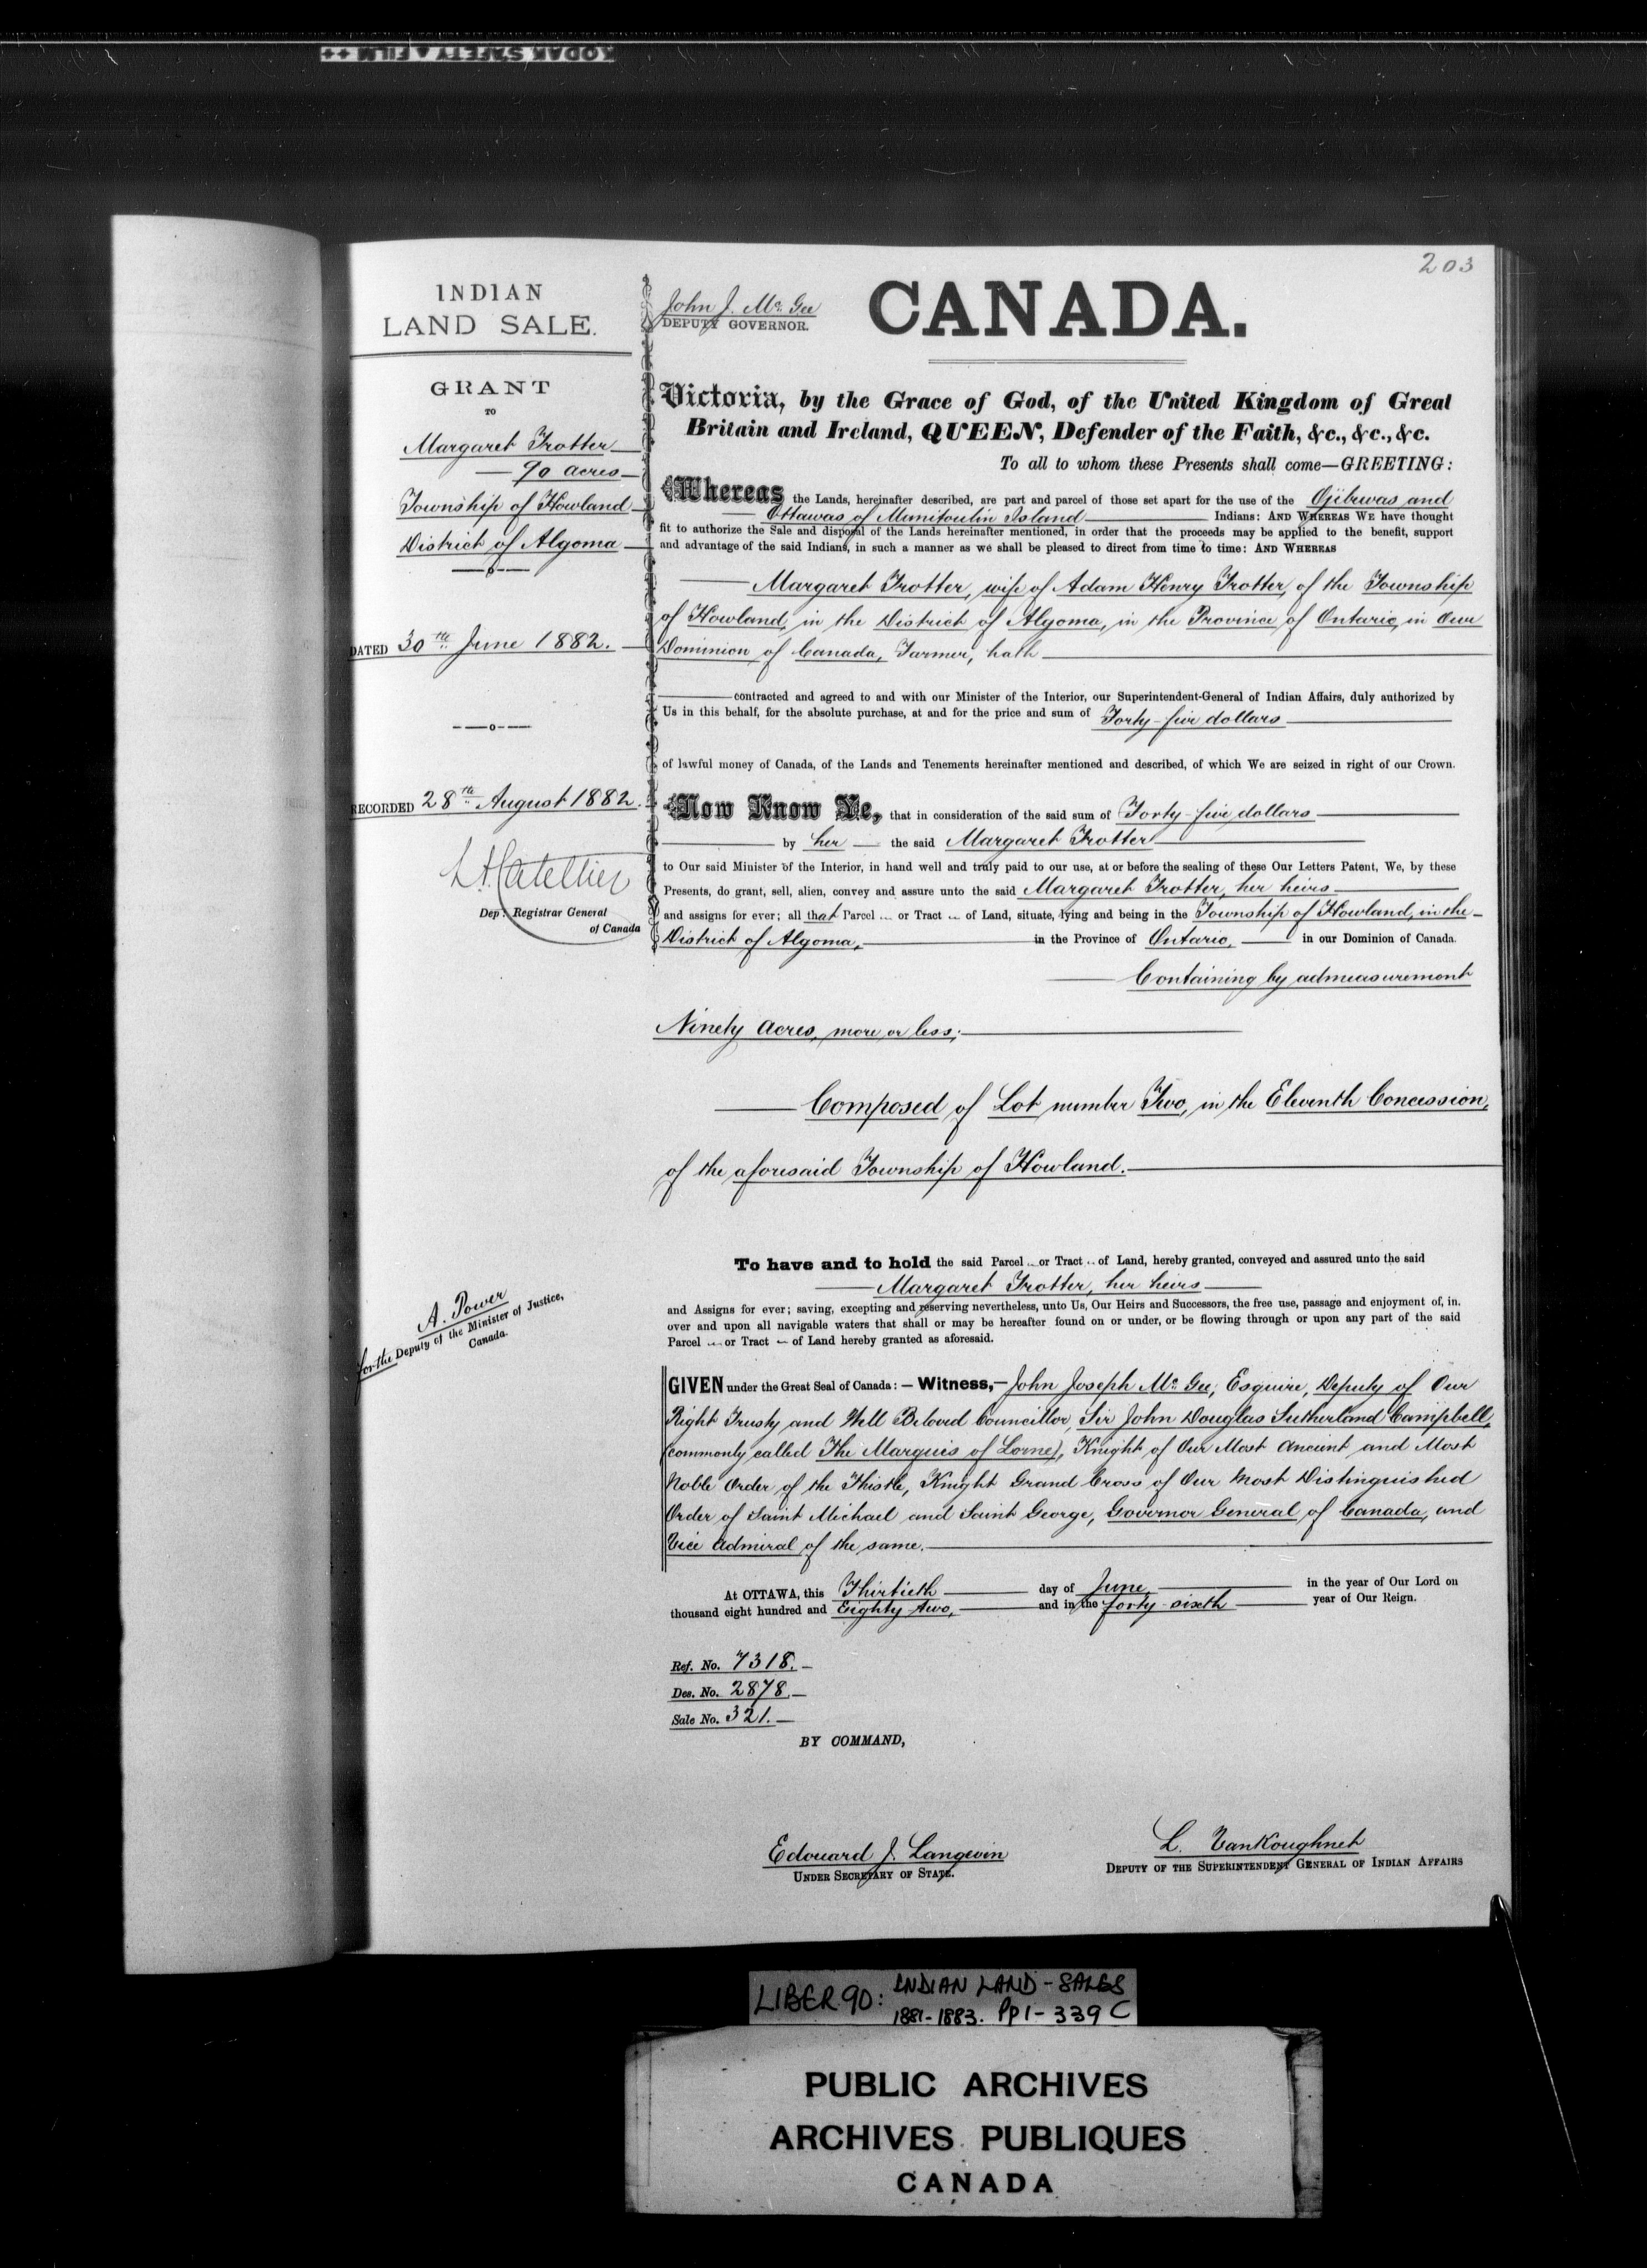 KODAK SAFETY FILM
203
INDIAN
LAND SALE.
GRANT
TO
Margaret Trotter
90 acres
Township of Howland
District of Algoma
DATED 30th June 1882.
RECORDED 28th August 1882.
Dep: Registrar General
of Canada
A. Power
for the Deputy of the Minister of Justice,
Canada.
John J. McGee
DEPUTY GOVERNOR.
CANADA.
Victoria, by the Grace of God, of the United Kingdom of Great
Britain and Ireland, QUEEN, Defender of the Faith, &c., &c., &c.
To all to whom these Presents shall come—GREETING:
Whereas the Lands, hereinafter described, are part and parcel of those set apart for the use of the Ojibwas and
Ottawas of Manitoulin Island Indians: AND WHEREAS WE have thought
fit to authorize the Sale and disposal of the Lands hereinafter mentioned, in order that the proceeds may be applied to the benefit, support
and advantage of the said Indians, in such a manner as we shall be pleased to direct from time to time: AND WHEREAS
Margaret Trotter, wife of Adam Henry Trotter, of the Township
of Howland, in the District of Algoma, in the Province of Ontario, in Our
Dominion of Canada, Farmer, hath
contracted and agreed to and with our Minister of the Interior, our Superintendent-General of Indian Affairs, duly authorized by
Us in this behalf, for the absolute purchase, at and for the price and sum of Forty-five dollars
of lawful money of Canada, of the Lands and Tenements hereinafter mentioned and described, of which We are seized in right of our Crown.
Now Know Ye, that in consideration of the said sum of Forty-five dollars
by her the said Margaret Trotter
to Our said Minister of the Interior, in hand well and truly paid to our use, at or before the sealing of these Our Letters Patent, We, by these
Presents, do grant, sell, alien, convey and assure unto the said Margaret Trotter, her heirs
and assigns for ever; all that Parcel or Tract of Land, situate, lying and being in the Township of Howland, in the
District of Algoma, in the Province of Ontario, in our Dominion of Canada.
Containing by admeasurement
Ninety Acres, more or less;
Composed of Lot number Two, in the Eleventh Concession,
of the aforesaid Township of Howland.
To have and to hold the said Parcel or Tract of Land, hereby granted, conveyed and assured unto the said
Margaret Trotter, her heirs
and Assigns for ever; saving, excepting and reserving nevertheless, unto Us, Our Heirs and Successors, the free use, passage and enjoyment of, in,
over and upon all navigable waters that shall or may be hereafter found on or under, or be flowing through or upon any part of the said
Parcel or Tract of Land hereby granted as aforesaid.
GIVEN under the Great Seal of Canada:—Witness,—John Joseph McGee, Esquire, Deputy of Our
Right Trusty and Well Beloved Councillor, Sir John Douglas Sutherland Campbell,
(commonly called The Marquis of Lorne), Knight of Our Most Ancient and Most
Noble Order of the Thistle, Knight Grand Cross of Our Most Distinguished
Order of Saint Michael and Saint George, Governor General of Canada, and
Vice Admiral of the same.
At OTTAWA, this Thirtieth day of June, in the year of Our Lord on
thousand eight hundred and Eighty two, and in the forty-sixth year of Our Reign.
Ref. No. 7318.
Des. No. 2878.
Sale No. 321.
BY COMMAND,
Edouard J. Langevin
UNDER SECRETARY OF STATE.
L. VanKoughnet
DEPUTY OF THE SUPERINTENDENT GENERAL OF INDIAN AFFAIRS
LIBER.90: INDIAN LAND-SALES
1881-1883. Pp 1-339 C
PUBLIC ARCHIVES
ARCHIVES PUBLIQUES
CANADA